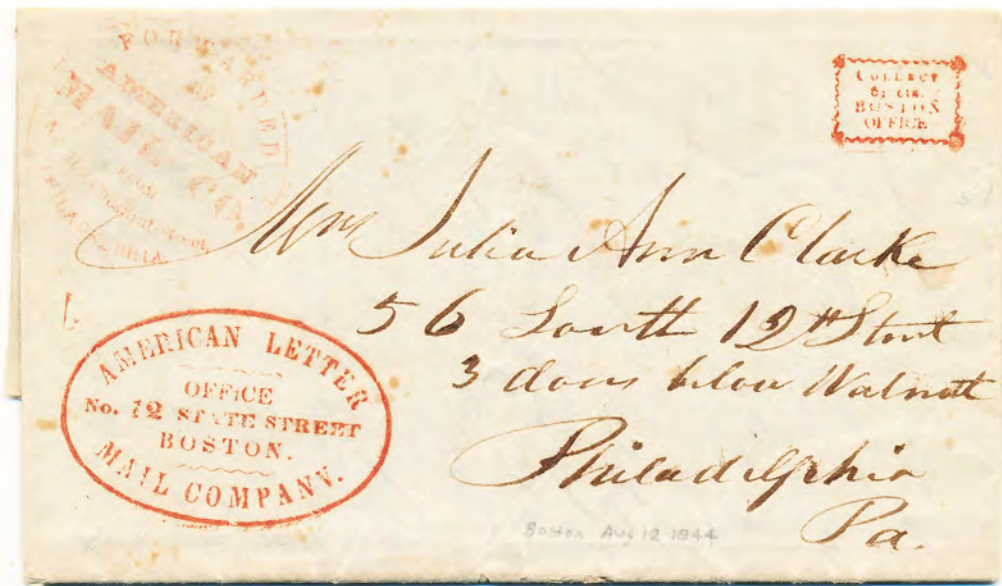 FORWARDED
BY
AMERICAN
MAIL Co.
FROM
PHILADELPHIA
COLLECT
6¼ cts.
BOSTON
OFFICE
Mrs Julia Ann Clarke
56 South 12th Street
3 doors below Walnutt
Philadelphia
Pa.
AMERICAN LETTER
OFFICE
No. 12 STATE STREET
BOSTON.
MAIL COMPANY.
Boston Aug 12 1844